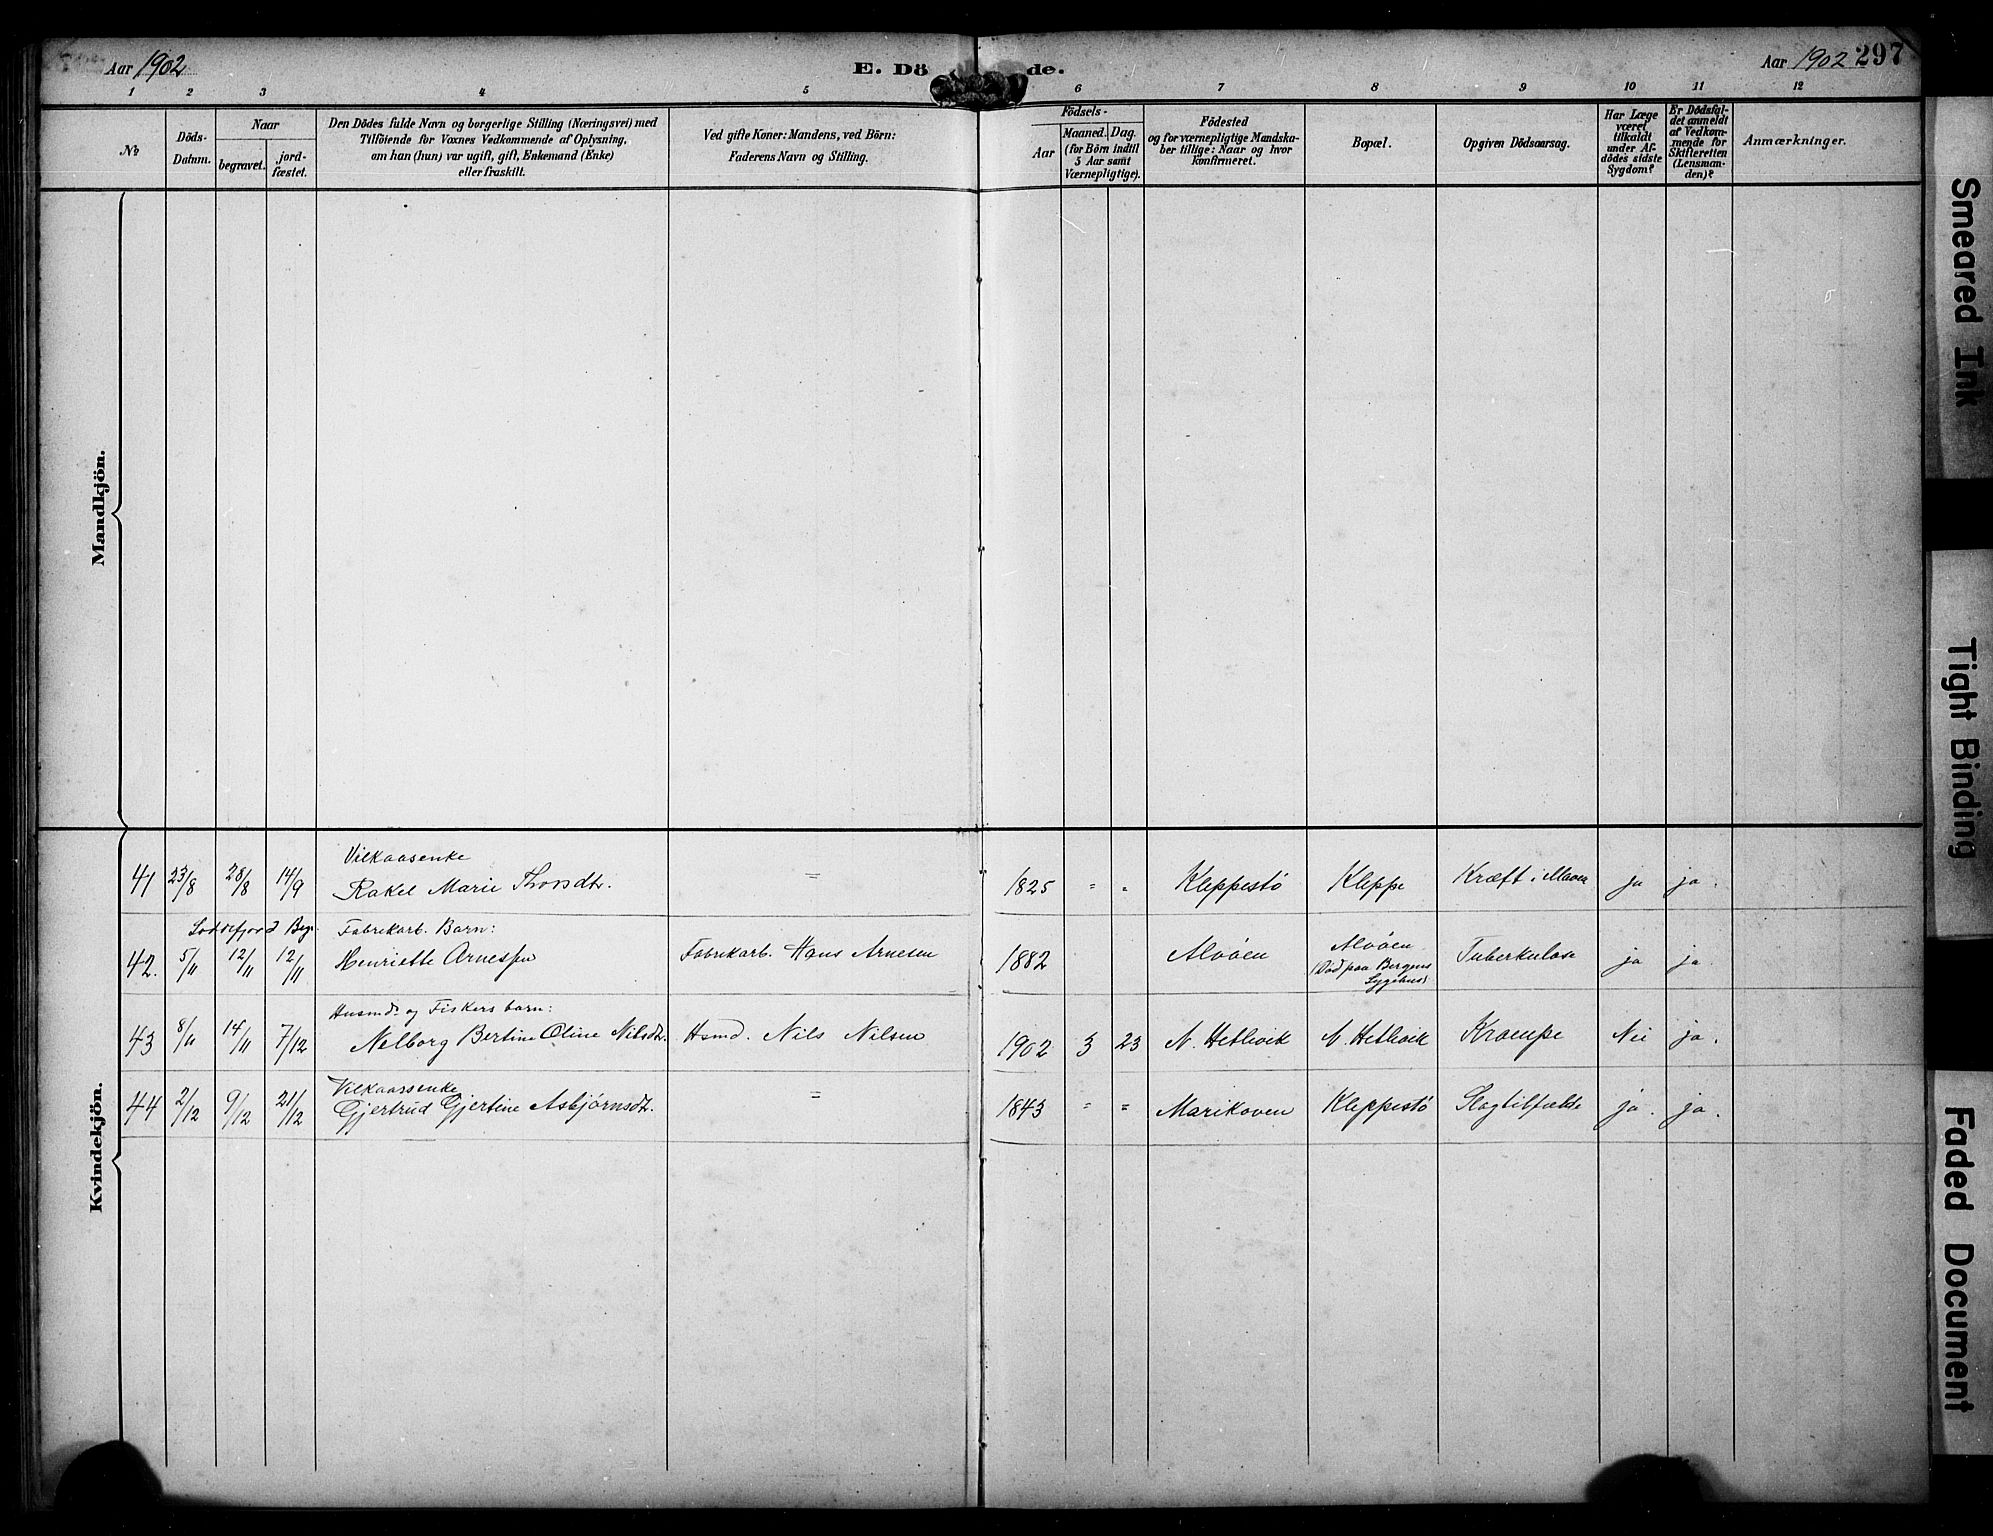 Aar 1902
E. Dö de.
Aar 1902 297
1 2 3 4 5 6 7 8 9 10 11 12
№
Döds-
Datum.
Naar
begravet.
jord-
fæstet.
Den Dödes fulde Navn og borgerlige Stilling (Næringsvei) med
Tilföiende for Voxnes Vedkommende af Oplysning,
om han (hun) var ugift, gift, Enkemand (Enke)
eller fraskilt.
Ved gifte Koner: Mandens, ved Börn:
Faderens Navn og Stilling.
Födsels-
Aar
Maaned. Dag.
(for Börn indtil
5 Aar samt
Værnepligtige).
Födested
og for værnepligtige Mandska-
ber tillige: Naar og hvor
konfirmeret.
Bopæl.
Opgiven Dödsaarsag.
Har Læge
været
tilkaldt
under Af-
dödes sidste
Sygdom?
Er Dödsfal-
det anmeldt
af Vedkom-
mende for
Skifteretten
(Lensman-
den)?
Anmærkninger.
Mandkjön.
Kvindekjön.
Vilkaasenke
41 23/8 28/8 14/9 Rakel Marie Thorsdtr. = 1825 " " Kleppestø Kleppe Kræft i Maven ja ja.
Loddefjord Beg. Fabrikarb. Barn:
42. 5/11 12/11 12/11 Henriette Arnessen Fabrikarb. Hans Arnesen 1882 Alvøen Alvøen Tuberkulose ja ja.
(Død paa Bergens
Sygehus)
Husmds og Fiskers barn:
43 8/11 14/11 7/12 Nelborg Bertine Oline Nilsdtr. Hsmd. Nils Nilsen 1902 3 23 N. Hetlevik N. Hetlevik Krampe Nei ja.
Vilkaassenke
44 2/12 9/12 21/12 Gjertrud Gjertine Asbjørnsdtr. = 1843 " " Marikoven Kleppestø Slagtilfælde ja. ja.
Smeared Ink
Tight Binding
Faded Document